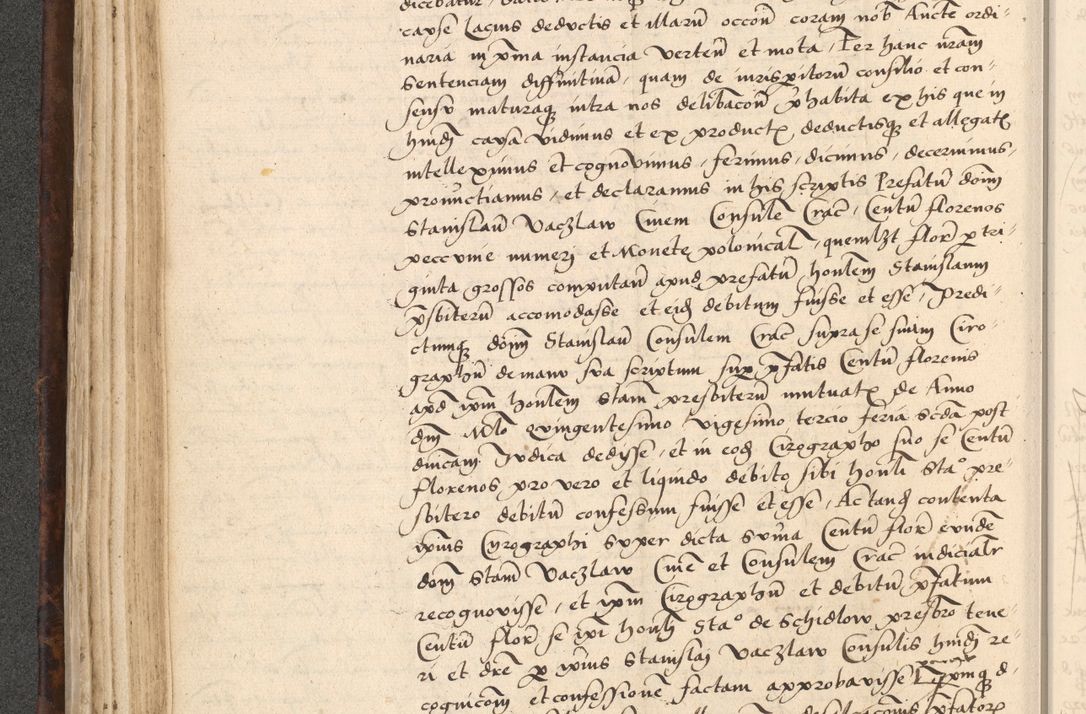 cause Lacius deductis et illarū occōn coram nob Aucte ordi-
naria in prima instancia verteñ et mota, Per hanc nram
sentenciam diffinitivā, quam de iurisperitorū consilio et con-
sensu maturaque intra nos delibacoñ prehabita ex his que in
hmōi causa vidimus et ex productis, deductisque et allegatis
intelleximus et cognovimus, ferimus, dicimus, decernimus,
pronūctiamus, et declaramus in his scriptis Prefatū dom
Stanislaū Vaczlaw Civem Consulē Crac, Centū florenos
peccunie numeri et Monete polonical, quemlzt flor per tri-
ginta grossos computan apud prefatū honlem Stanislaum
prsbiterū accomodasse et eid debitum fuisse et esse, Predi-
ctumque dom Stanislaū Consulem Crac supra se suum Ciro-
graphū de manu sua scriptum super prefatis Centū florenis
apd ipm honlem Stam presbiterū mutuatis de Anno
dni Mlo quingentesimo vigesimo tercio feria scda post
dnicam Iudica dedisse, et in eod Cirographo suo se Centū
florenos pro vero et liquido debito sibi honli Stao pre-
sbitero debitū confessum fuisse et esse, Ac tand contenta
ipius Cyrographi super dicta sūma Centū flor eundē
dom Stam Vaczlaw Civē et Consulem Crac iudicialr
recognovisse, et ipm Cirographū et debitū prefatum
Centū flor se ipi honli Stao de Schidlow presbro tene-
ri et drē per ipius Stanislai Vaczlaw Consulis hmōi re-
cognicom et confessionē factam approbavisse Ipumque d-